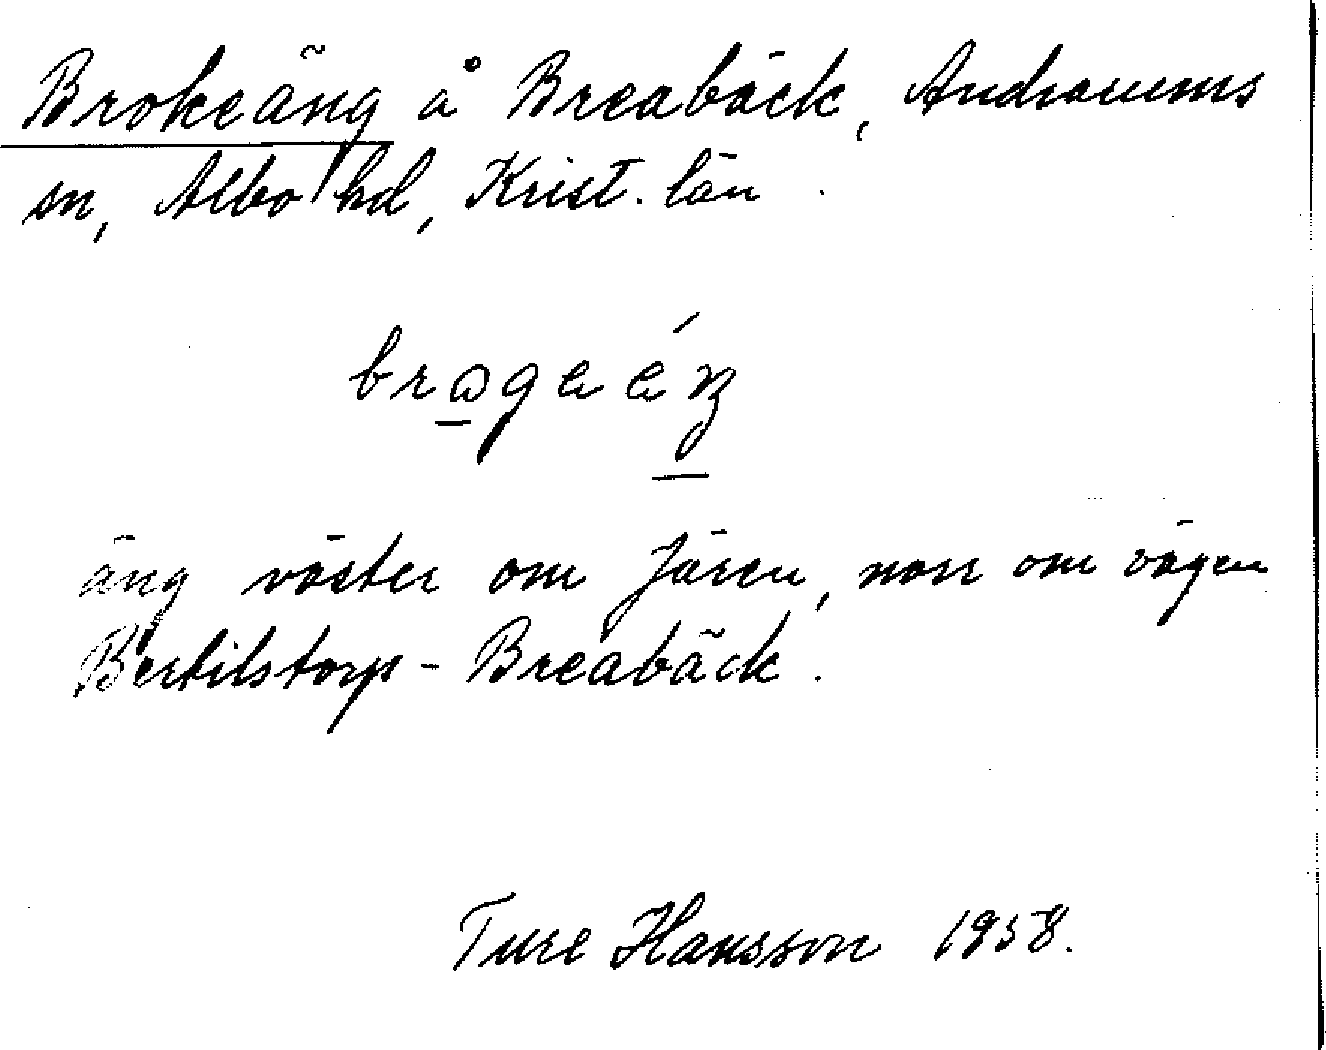 Brokeäng å Breabäck, Andrarums
sn, Albo hd, Krist. län.
äng väster om Jären, norr om vägen
Bertilstorp - Breabäck.
Ture Hansson 1958.